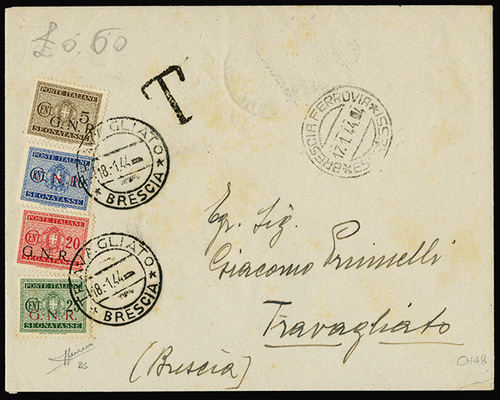 £0.60
T
POSTE ITALIANE
CENT. 5
G.N.R.
SEGNATASSE
POSTE ITALIANE
CENT. 10
N
SEGNATASSE
POSTE ITALIANE
CENT. 20
G.N.R.
SEGNATASSE
POSTE ITALIANE
CENT. 25
G.N.R.
SEGNATASSE
TRAVAGLIATO
18.-1.44
* BRESCIA *
TRAVAGLIATO
18.-1.44
* BRESCIA *
BRESCIA FERROVIA
17.1.44
Egr. Sig.
Giacomo
Travagliato
(Brescia)
BS
CH48